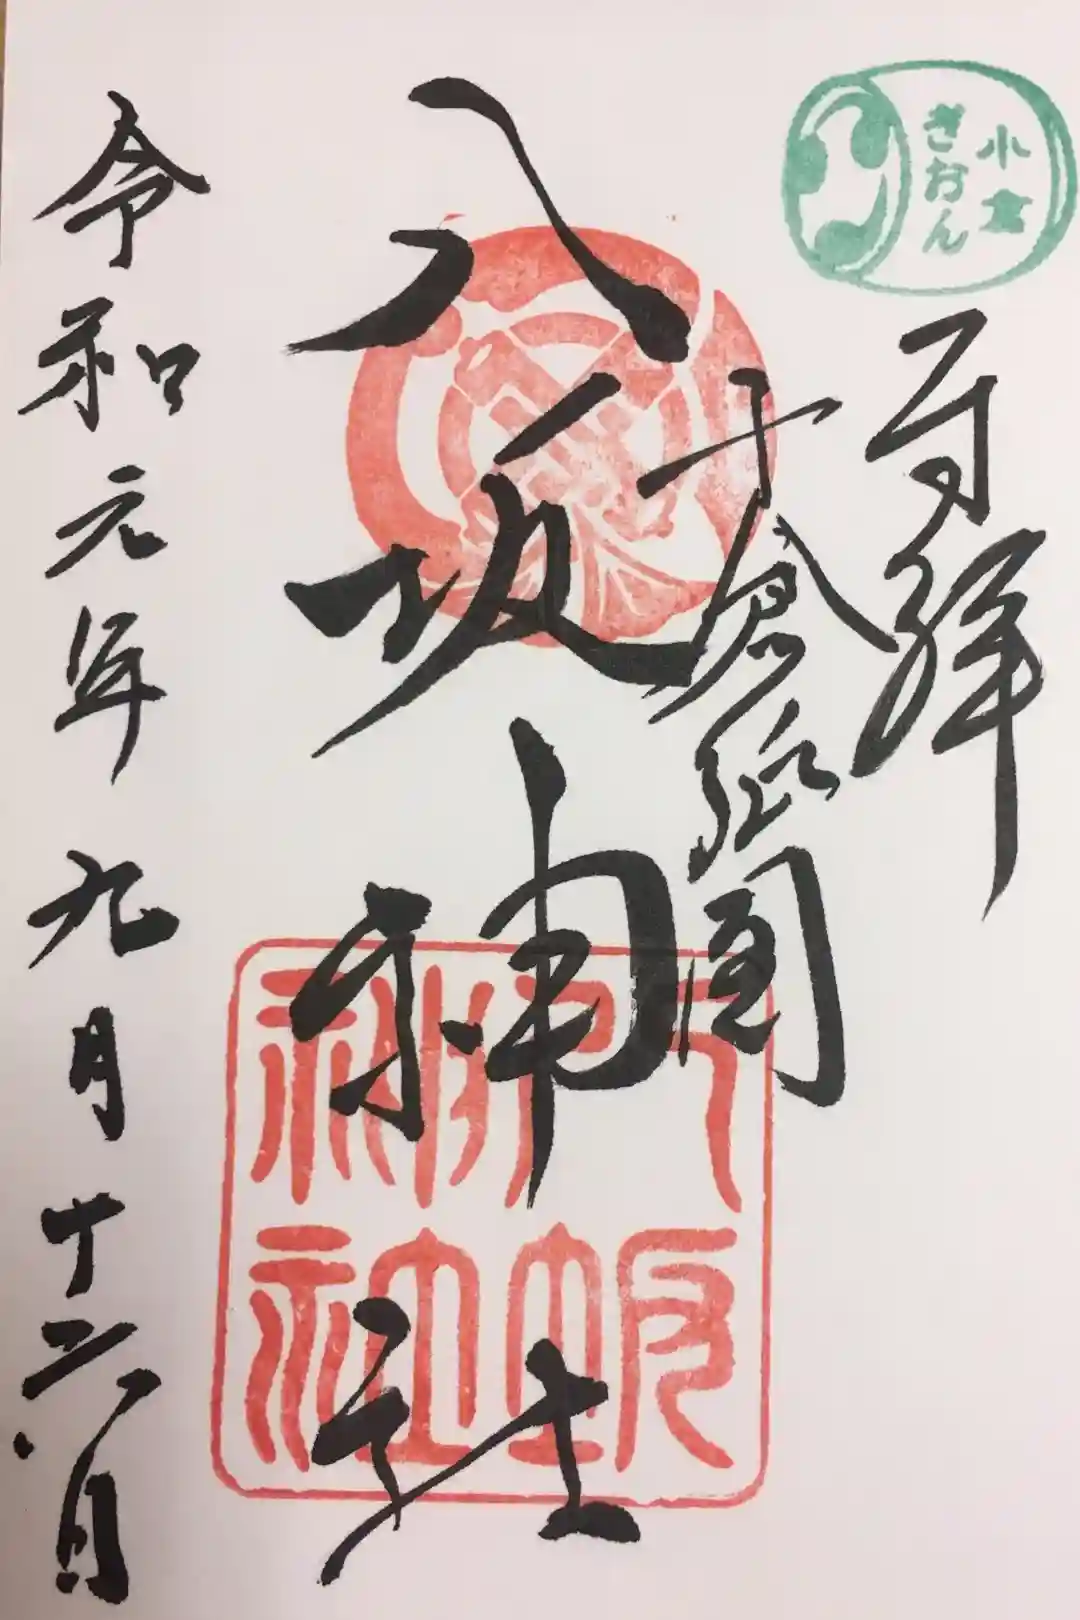 小倉
ぎおん
奉拝
小倉祇園
八坂神社
八坂
神社
令和元年 九月十六日